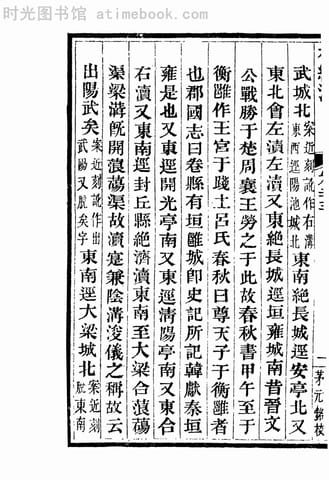 时光图书馆 · atimebook.com
武城北案近刻訛作右溝東西逕陽池城北東南絕長城逕安亭北又
東北會左瀆左瀆又東絕長城逕垣雍城南昔晉文
公戰勝于楚周襄王勞之于此故春秋書甲午至于
衡雝作王宫于踐土呂氏春秋曰尊天子于衡雝者
也郡國志曰卷縣有垣雝城卽史記所記韓獻秦垣
雍是也又東逕開光亭南又東逕清陽亭南又東合
右瀆又東南逕封丘縣絕濟瀆東南至大梁合蒗蕩
渠梁溝旣開蒗蕩渠故瀆寔兼陰溝浚儀之稱故云
出陽武矣案近刻訛作出武陽又脫矣字東南逕大梁城北案近刻脫東南